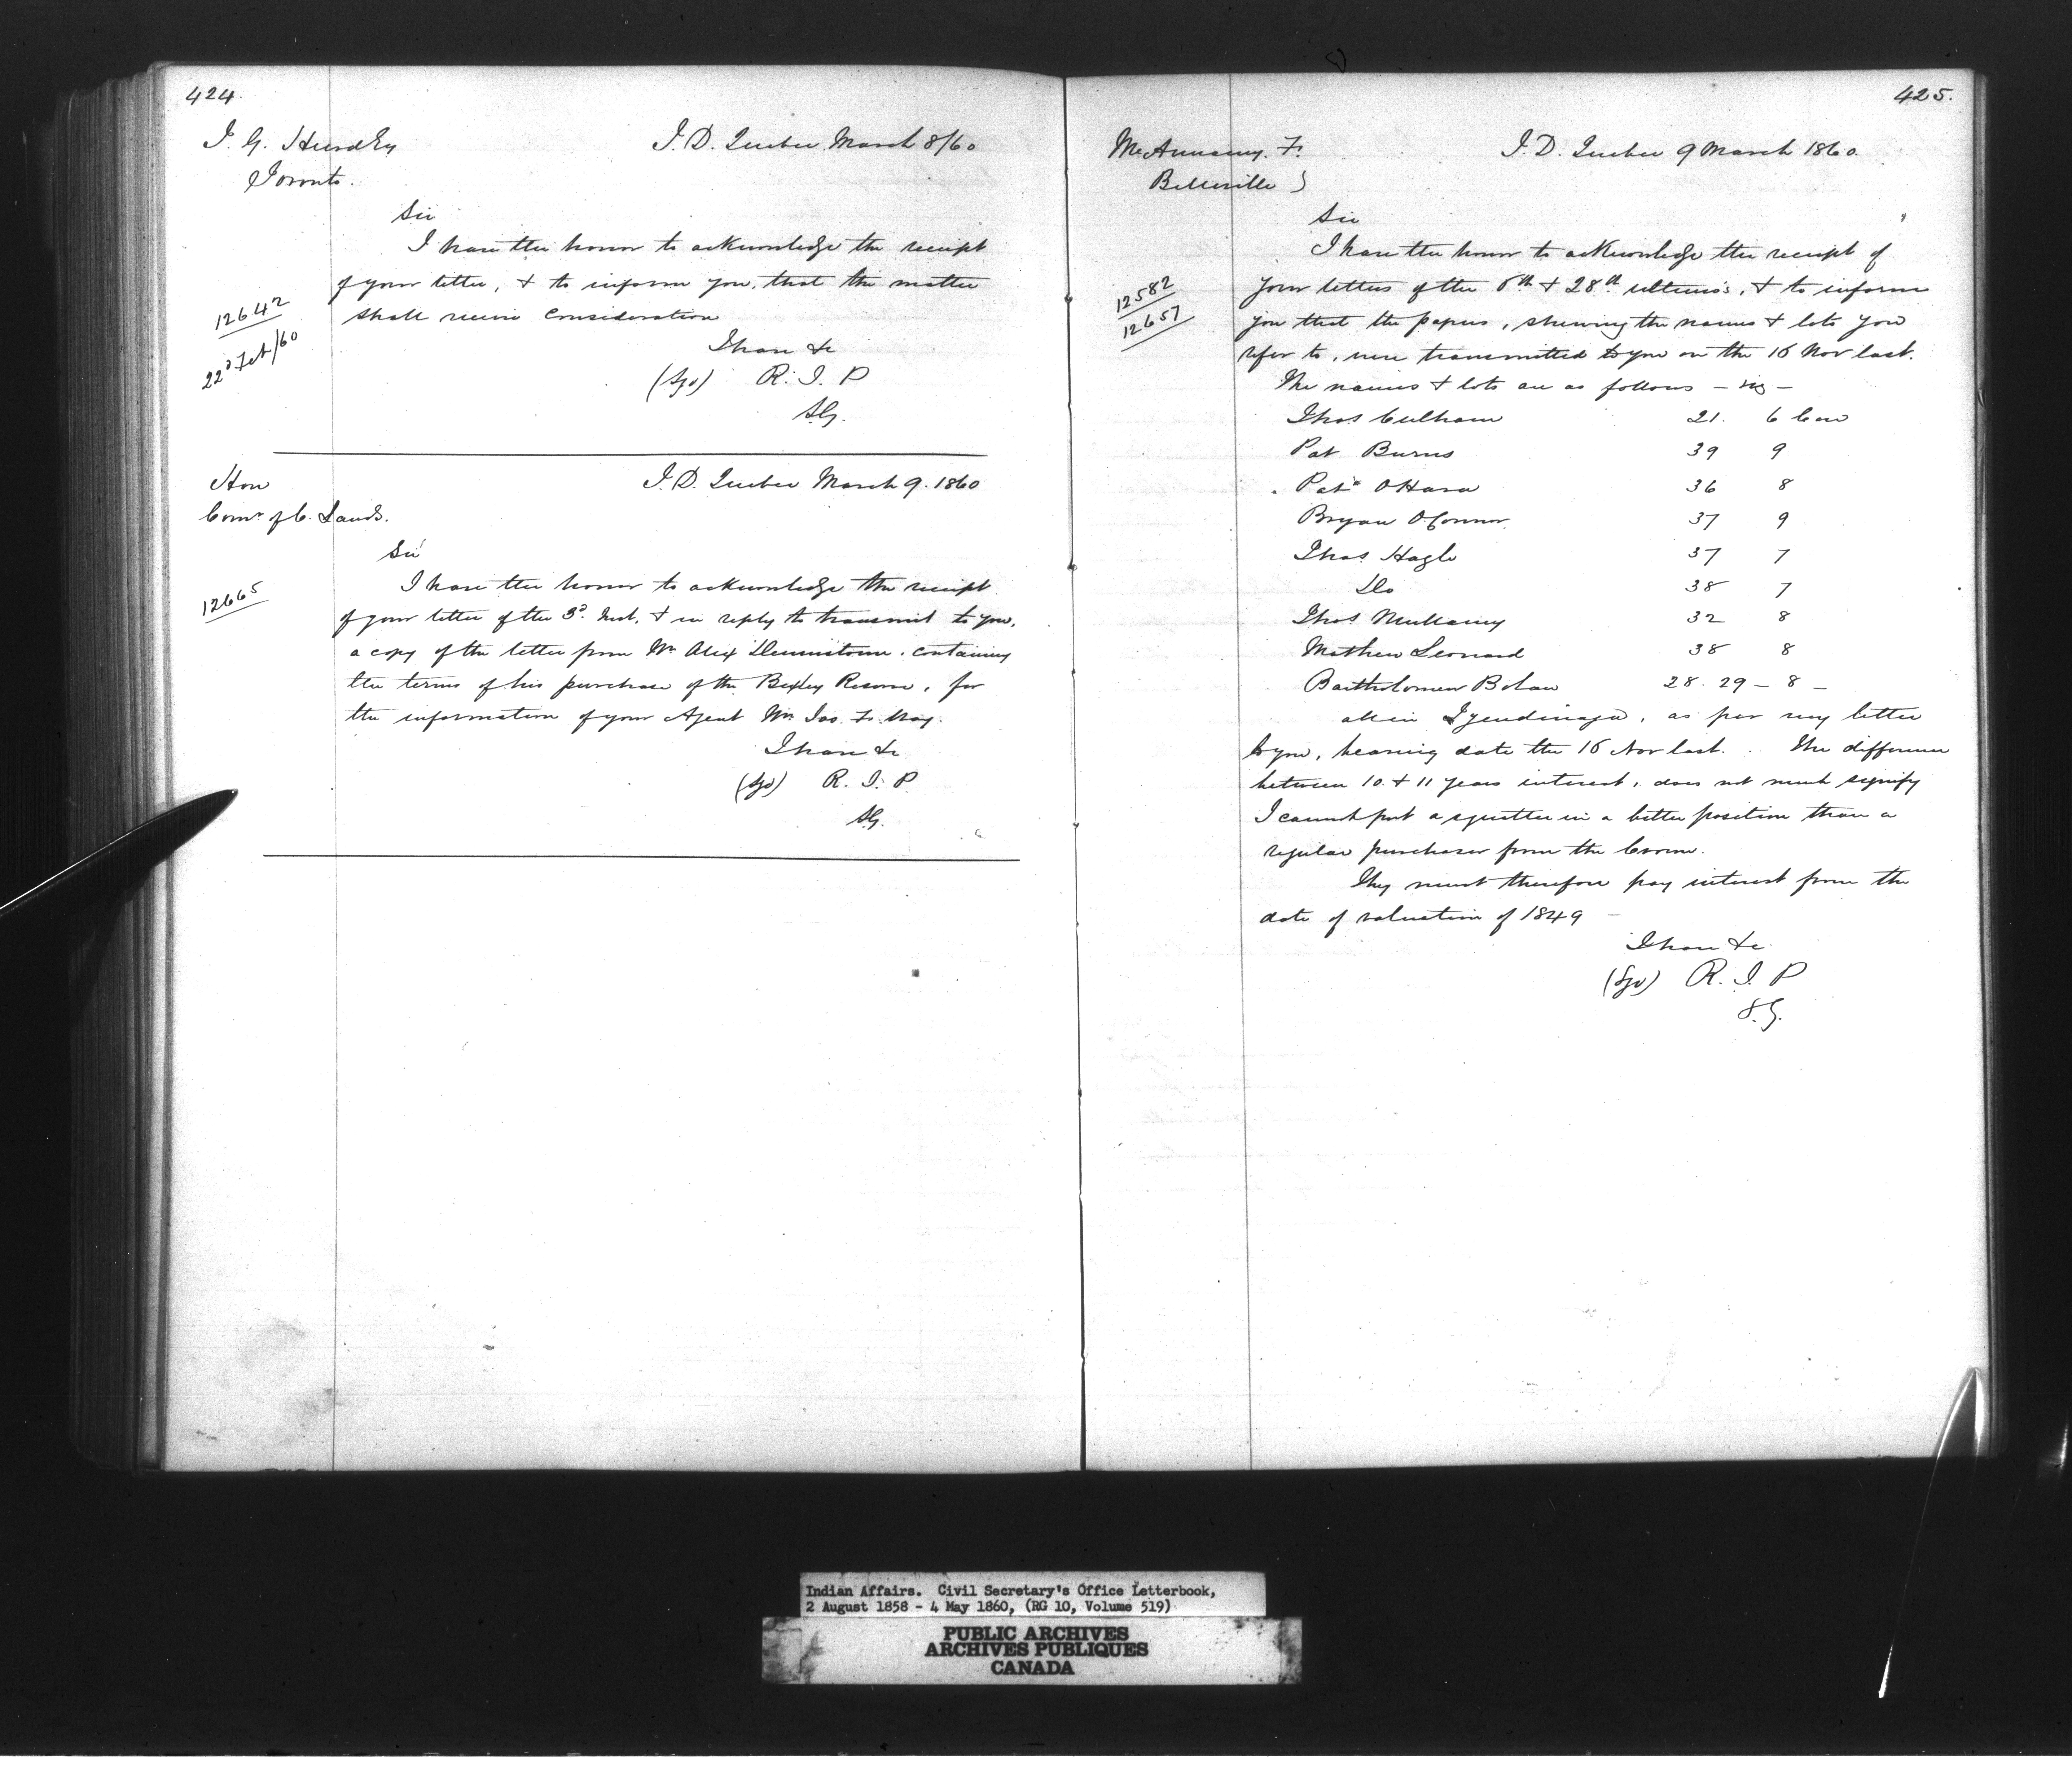 424.
I. G. Hendry
Toronto.
I. D. Quebec March 8/60
Sir
I have the honor to acknowledge the receipt
of your letter, & to inform you, that the matter
shall receive consideration
12642
22d Feb/60
I have &c
(Sgd) R. T. P
S.G.
Hon
Comr of C. Lands.
I. D. Quebec March 9. 1860
Sir
12665
I have the honor to acknowledge the receipt
of your letter of the 3d. Inst, & in reply to transmit to you,
a copy of the letter from Mr Alex Dennistoun. containing
the terms of his purchase of the Bexley Reserve, for
the information of your Agent Mr Jas. F. Way.
I have &c
(Sgd) R. T. P.
S.G.
425.
McAnnany. F.
Belleville
I. D. Quebec 9 March 1860.
Sir
I have the honor to acknowledge the receipt of
12582
12657
your letters of the 6th & 28th ultimo's, & to inform
you that the papers, shewing the names & lots you
refer to, were transmitted to you on the 16 Nov last.
The names & lots are as follows – viz –
Thos Culham 21. 6 Con
Pat Burns 39 9
Patk O'Hara 36 8
Bryan O'Connor 37 9
Thos Hagle 37 7
Do 38 7
Thos Mullaney 32 8
Mathew Leonard 38 8
Bartholomew Bolan 28. 29 – 8 –
all in Tyendinaga, as per my letter
to you, bearing date the 16 Nov last. The difference
between 10 & 11 years interest, does not much signify
I cannot put a squatter in a better position than a
regular purchaser from the Crown.
They must therefore pay interest from the
date of valuation of 1849 –
I have &c
(Sgd) R. T. P
S. G.
Indian Affairs. Civil Secretary's Office Letterbook,
2 August 1858 - 4 May 1860, (RG 10, Volume 519)
PUBLIC ARCHIVES
ARCHIVES PUBLIQUES
CANADA